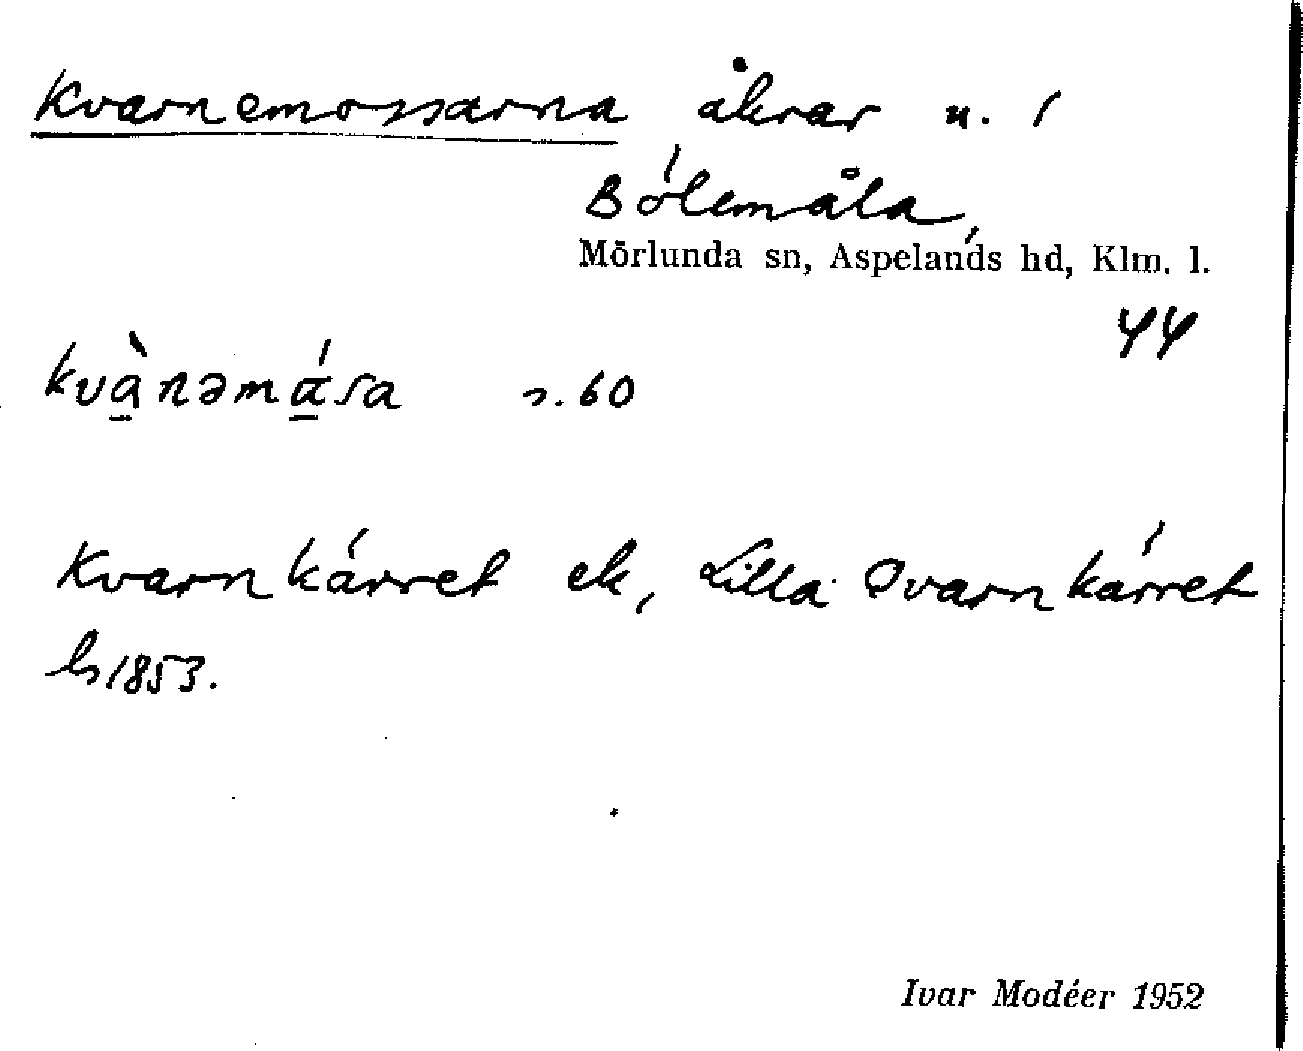 Kvarnemossarna åkrar u. 1
Bölemåla,
Mörlunda sn, Aspelands hd, Klm. l.
44
kvànəmása s. 60
Kvarnkärret ek, Lilla Qvarnkärret
ls 1853.
Ivar Modéer 1952